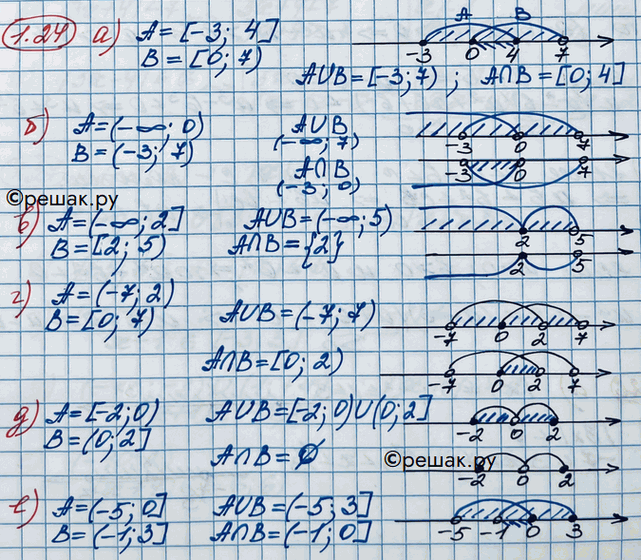 1.24 а) A = [-3; 4]
B = [0; 7)
A B
-3 0 4 7
A∪B = [-3; 7) ; A∩B = [0; 4]
б) A = (-∞; 0)
B = (-3; 7)
A∪B
(-∞; 7)
-3 0 7
A∩B
(-3; 0)
-3 0 7
©решак.ру
в) A = (-∞; 2]
B = [2; 5)
A∪B = (-∞; 5)
A∩B = {2}
2 5
2 5
г) A = (-7; 2)
B = [0; 7)
A∪B = (-7; 7)
-7 0 2 7
A∩B = [0; 2)
-7 0 2 7
д) A = [-2; 0)
B = (0; 2]
A∪B = [-2; 0)∪(0; 2]
-2 0 2
A∩B = ∅
©решак.ру
-2 0 2
е) A = (-5; 0]
B = (-1; 3]
A∪B = (-5; 3]
A∩B = (-1; 0]
-5 -1 0 3